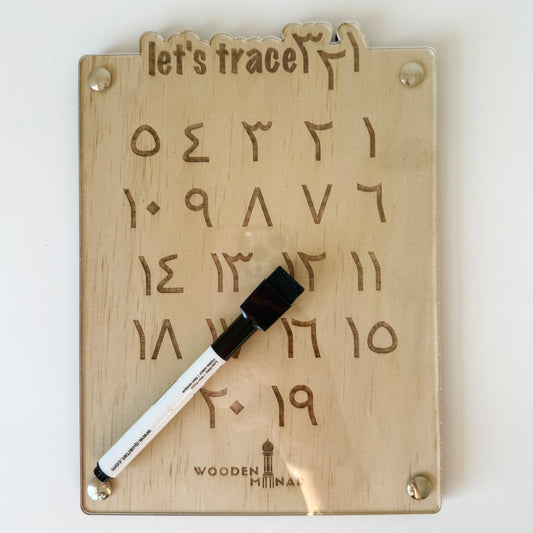 let's trace ٣٢١
١ ٢ ٣ ٤ ٥
٦ ٧ ٨ ٩ ١٠
١١ ١٢ ١٣ ١٤
١٥ ١٦ ١٧ ١٨
١٩ ٢٠
WOODEN
MINAR
www.quartet.com